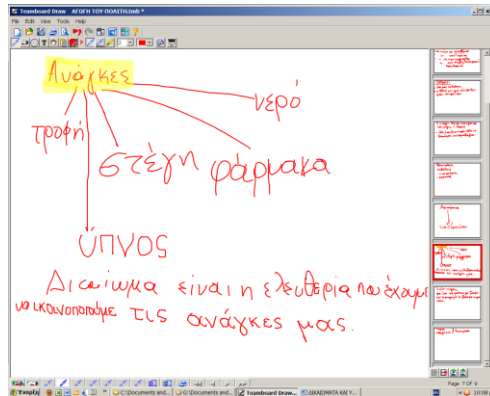 Teamboard Draw ΑΓΩΓΗ ΤΟΥ ΠΟΛΙΤΗ.tmb *
File Edit View Tools Help
Ανάγκες
νερό
τροφή
στέγη
φάρμακα
ύπνος
Δικαίωμα είναι η ελευθερία που έχουμε
να ικανοποιούμε τις ανάγκες μας.
Page 7 OF 9
Έναρξη
C:\Documents and...
G:\Documents and...
Teamboard Draw...
ΔΙΚΑΙΩΜΑΤΑ ΚΑΙ Υ...
10:08